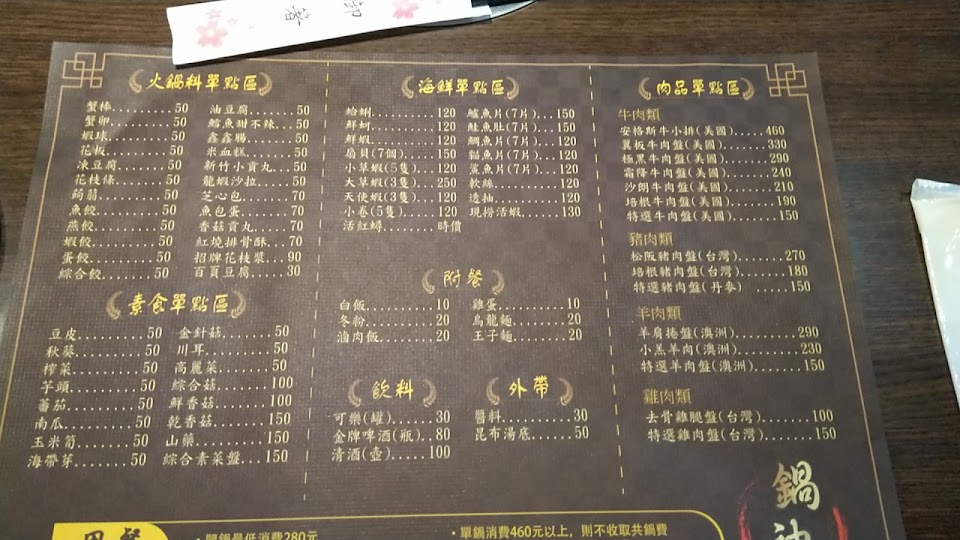 御著
火鍋料單點區
蟹棒........50
蟹卵........50
蝦球........50
花板........50
凍豆腐......50
花枝條......50
蒟蒻........50
魚餃........50
燕餃........50
蝦餃........50
蛋餃........50
綜合餃......50
油豆腐......50
鱈魚甜不辣..50
鑫鑫腸......50
米血糕......50
新竹小貢丸..50
龍蝦沙拉....50
芝心包......70
魚包蛋......70
香菇貢丸....70
紅燒排骨酥..70
招牌花枝漿..90
百頁豆腐....30
素食單點區
豆皮........50
秋葵........50
榨菜........50
芋頭........50
蕃茄........50
南瓜........50
玉米筍......50
海帶芽......50
金針菇......50
川耳........50
高麗菜......50
綜合菇......100
鮮香菇......100
乾香菇......150
山藥........150
綜合素菜盤...150
海鮮單點區
蛤蜊........120
鮮蚵........120
鮮蝦........120
扇貝(7個)...150
小草蝦(5隻)..120
大草蝦(3隻)..250
天使蝦(3隻)..120
小卷(5隻)....120
活紅蟳.......時價
鱸魚片(7片)...150
鮭魚肚(7片)...150
鯛魚片(7片)...120
貓魚片(7片)...120
鯊魚片(7片)...120
軟絲........120
透抽........120
現撈活蝦....130
附餐
白飯........10
冬粉........20
滷肉飯......20
雞蛋........10
烏龍麵......20
王子麵......20
飲料
可樂(罐)....30
金牌啤酒(瓶)..80
清酒(壺)....100
外帶
醬料........30
昆布湯底....50
肉品單點區
牛肉類
安格斯牛小排(美國)....460
翼板牛肉盤(美國)......330
極黑牛肉盤(美國)......290
霜降牛肉盤(美國)......240
沙朗牛肉盤(美國)......210
培根牛肉盤(美國)......190
特選牛肉盤(美國)......150
豬肉類
松阪豬肉盤(台灣).......270
培根豬肉盤(台灣).......180
特選豬肉盤(丹麥) .....150
羊肉類
羊肩捲盤(澳洲)........290
小羔羊肉(澳洲)........230
特選羊肉盤(澳洲)......150
雞肉類
去骨雞腿盤(台灣)......100
特選雞肉盤(台灣)......150
鍋神
用餐
・開鍋最低消費280元
・單鍋消費460元以上，則不收取共鍋費